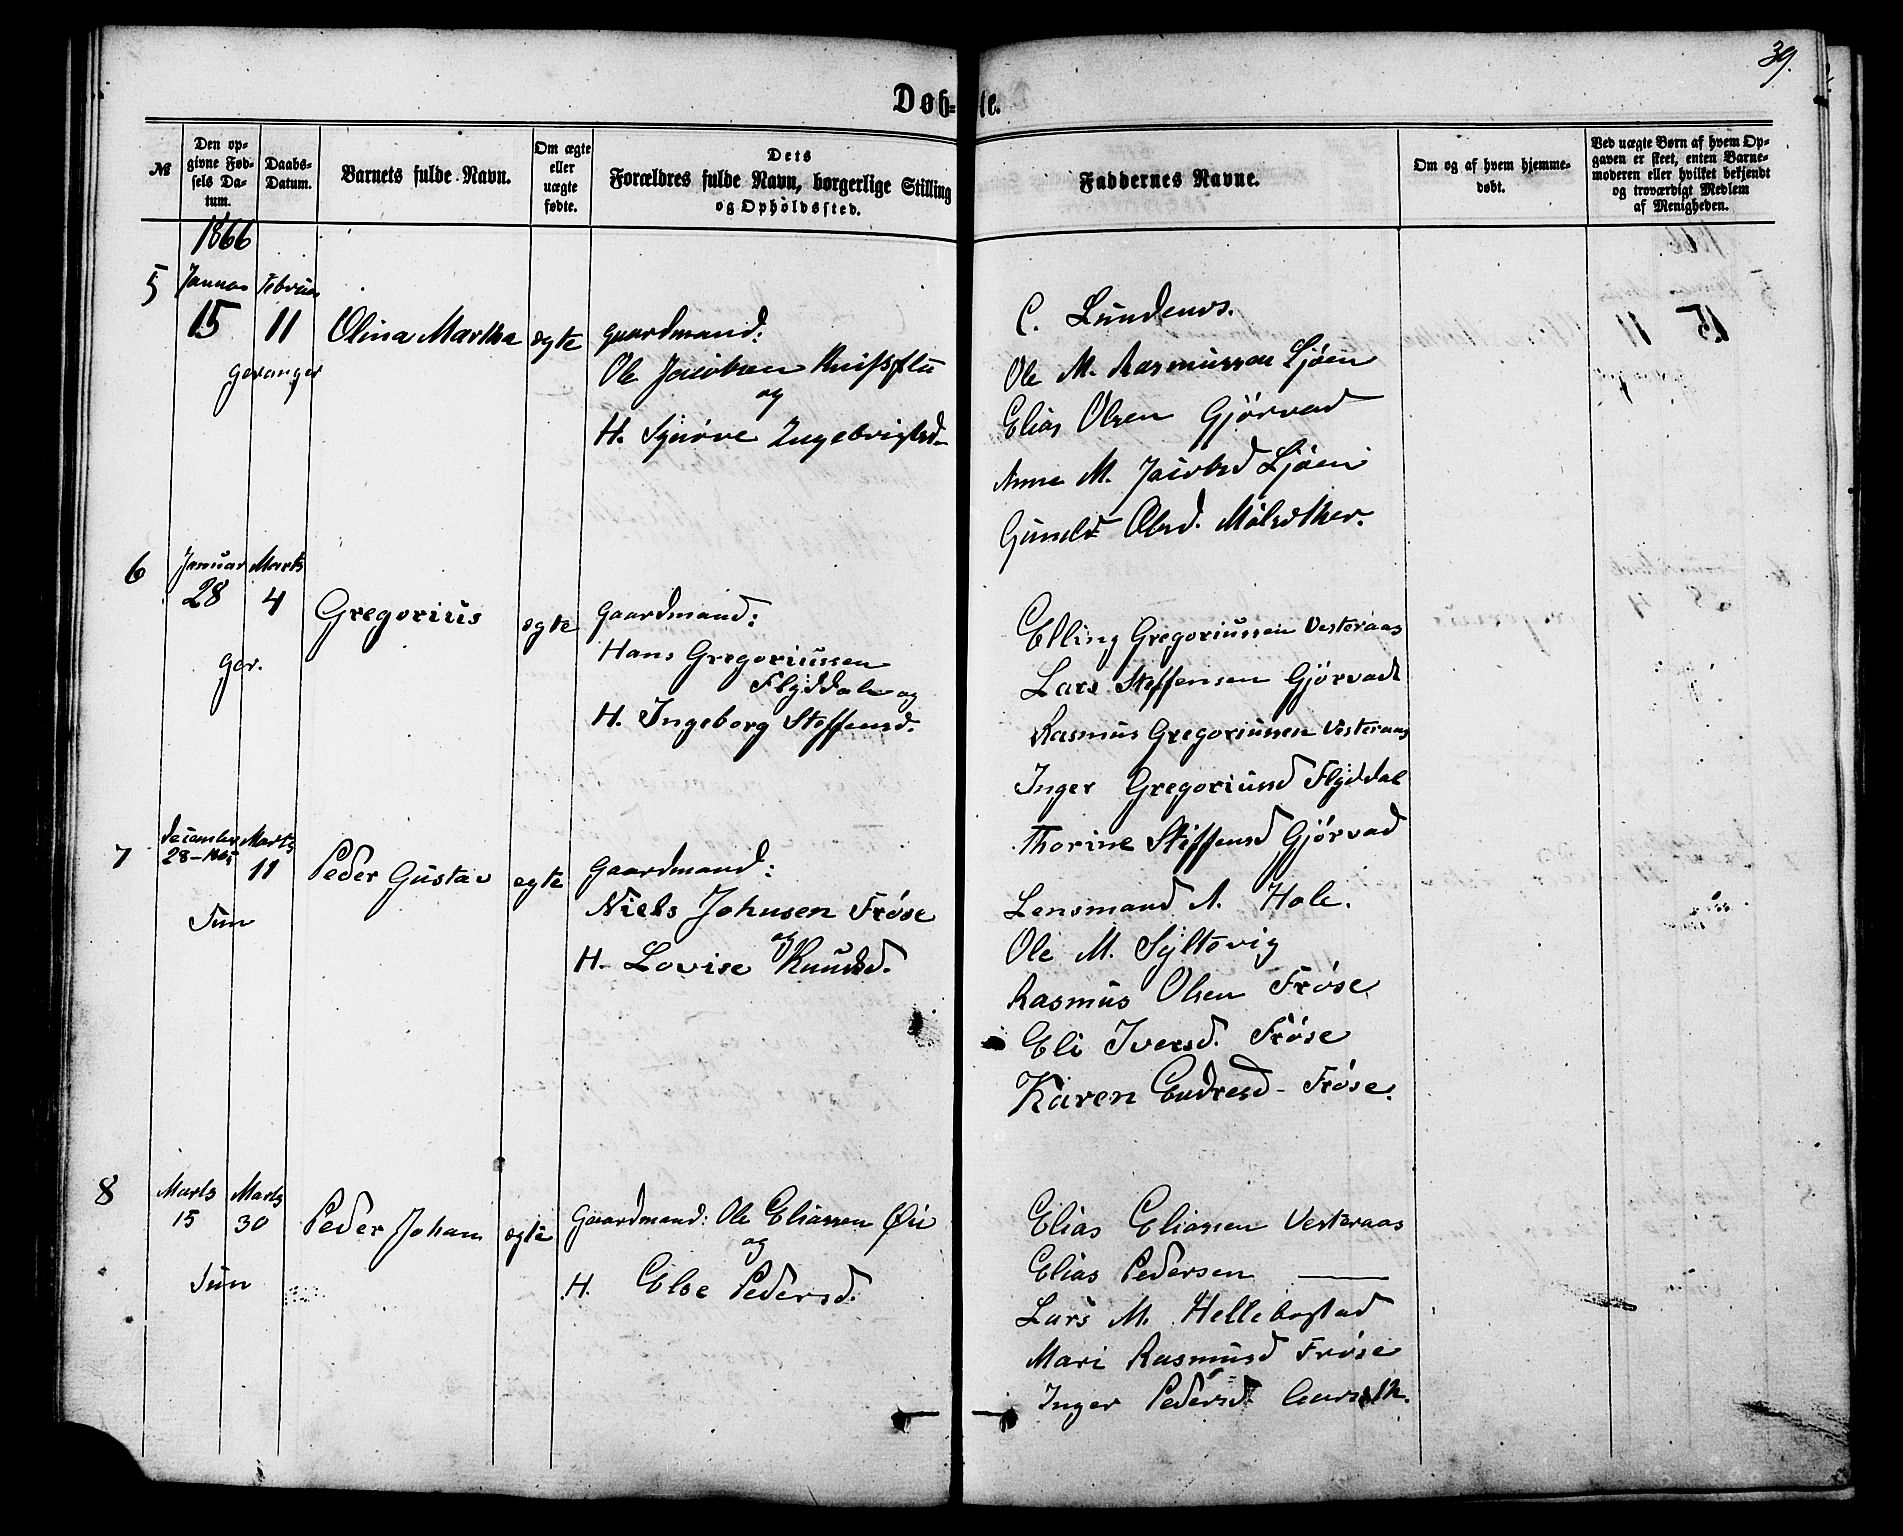 39.
Døb-te.
№
Den op-
givne Fød-
sels Da-
tum.
Daabs-
Datum.
Barnets fulde Navn.
Om ægte
eller
uægte
fødte.
Dets
Forældres fulde Navn, borgerlige Stilling
og Opholdssted.
Faddernes Navne.
Om og af hvem hjemme-
døbt.
Ved uægte Børn af hvem Op-
gaven er skeet, enten Barne-
moderen eller hvilket bekjendt
og troværdigt Medlem
af Menigheden.
1866
5
Januar
15
Februar
11
Geranger
Olina Martha
ægte
Gaardmand:
Ole Jacobsen
og
H. Synøve Ingebrigtsd
C. Lundenes.
Ole M. Rasmussen Ljøen
Elias Olsen Gjørvad
Anne M. Jacobsd Ljøen
Olsd. Mølsæther.
6
Januar
28
Marts
4
Ger.
Gregorius
ægte
Gaardmand:
Hans Gregoriussen
Flyddale og
H. Ingeborg Steffensd.
Elling Gregoriussen Vesteraas
Lars Steffensen Gjørvad
Rasmus Gregoriussen Vesteraas
Inger Gregoriusd Flyddal
Thorine Steffensd Gjørvad
7
December
28-1865
Marts
11
Sun
Peder Gustav
ægte
Gaardmand:
Niels Johnsen Frøse
og
H. Lovise Knudsd.
Lensmand A. Hole.
Ole M. Syltevig
Rasmus Olsen Frøse
Eli Iversd. Frøse
Karen Endresd- Frøse.
8
Marts
15
Marts
30
Sun
Peder Johan
ægte
Gaardmand: Ole Eliassen Øie
og
H. Else Pedersd.
Elias Eliassen Vesteraas
Elias Pedersen ——
Lars M. Hellebostad
Mari Rasmusd Frøse
Inger Pedersd